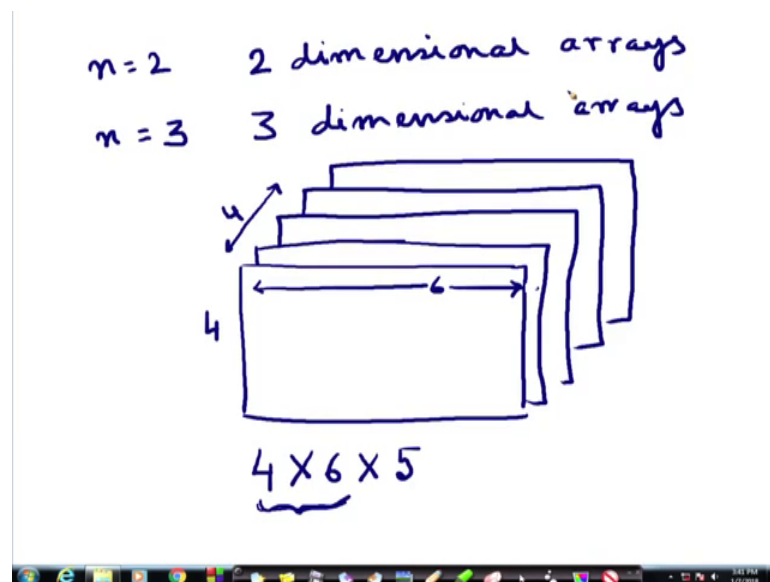 n = 2 2 dimensional arrays
n = 3 3 dimensional arrays
4
6
4
4 X 6 X 5
3:41 PM